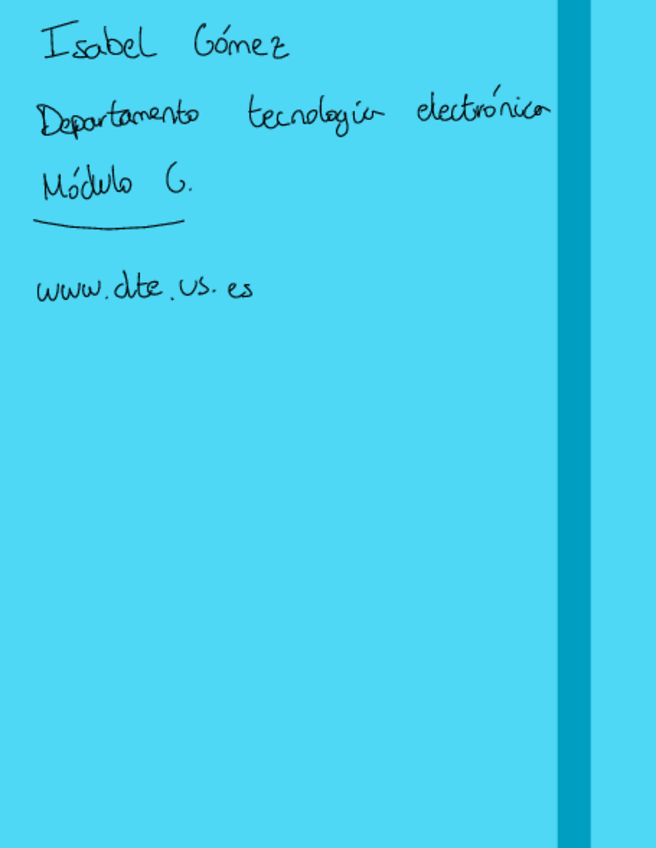 Isabel Gómez
Departamento tecnología electrónica
Módulo G.
www.dte.us.es